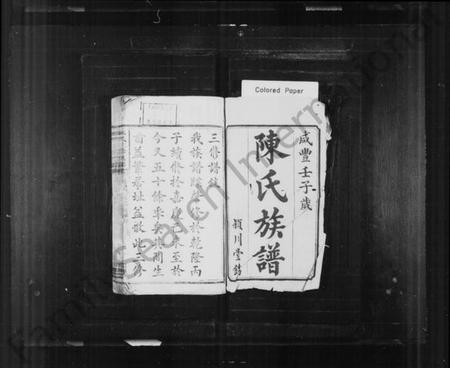 Colored Paper
咸豐壬子歲
陳氏族譜
潁川堂鐫
三修譜
我族譜 於乾隆丙
子續修於嘉慶 至於
今又五十餘季矣 生
齒益繁 址益散此三修
FamilySearch International